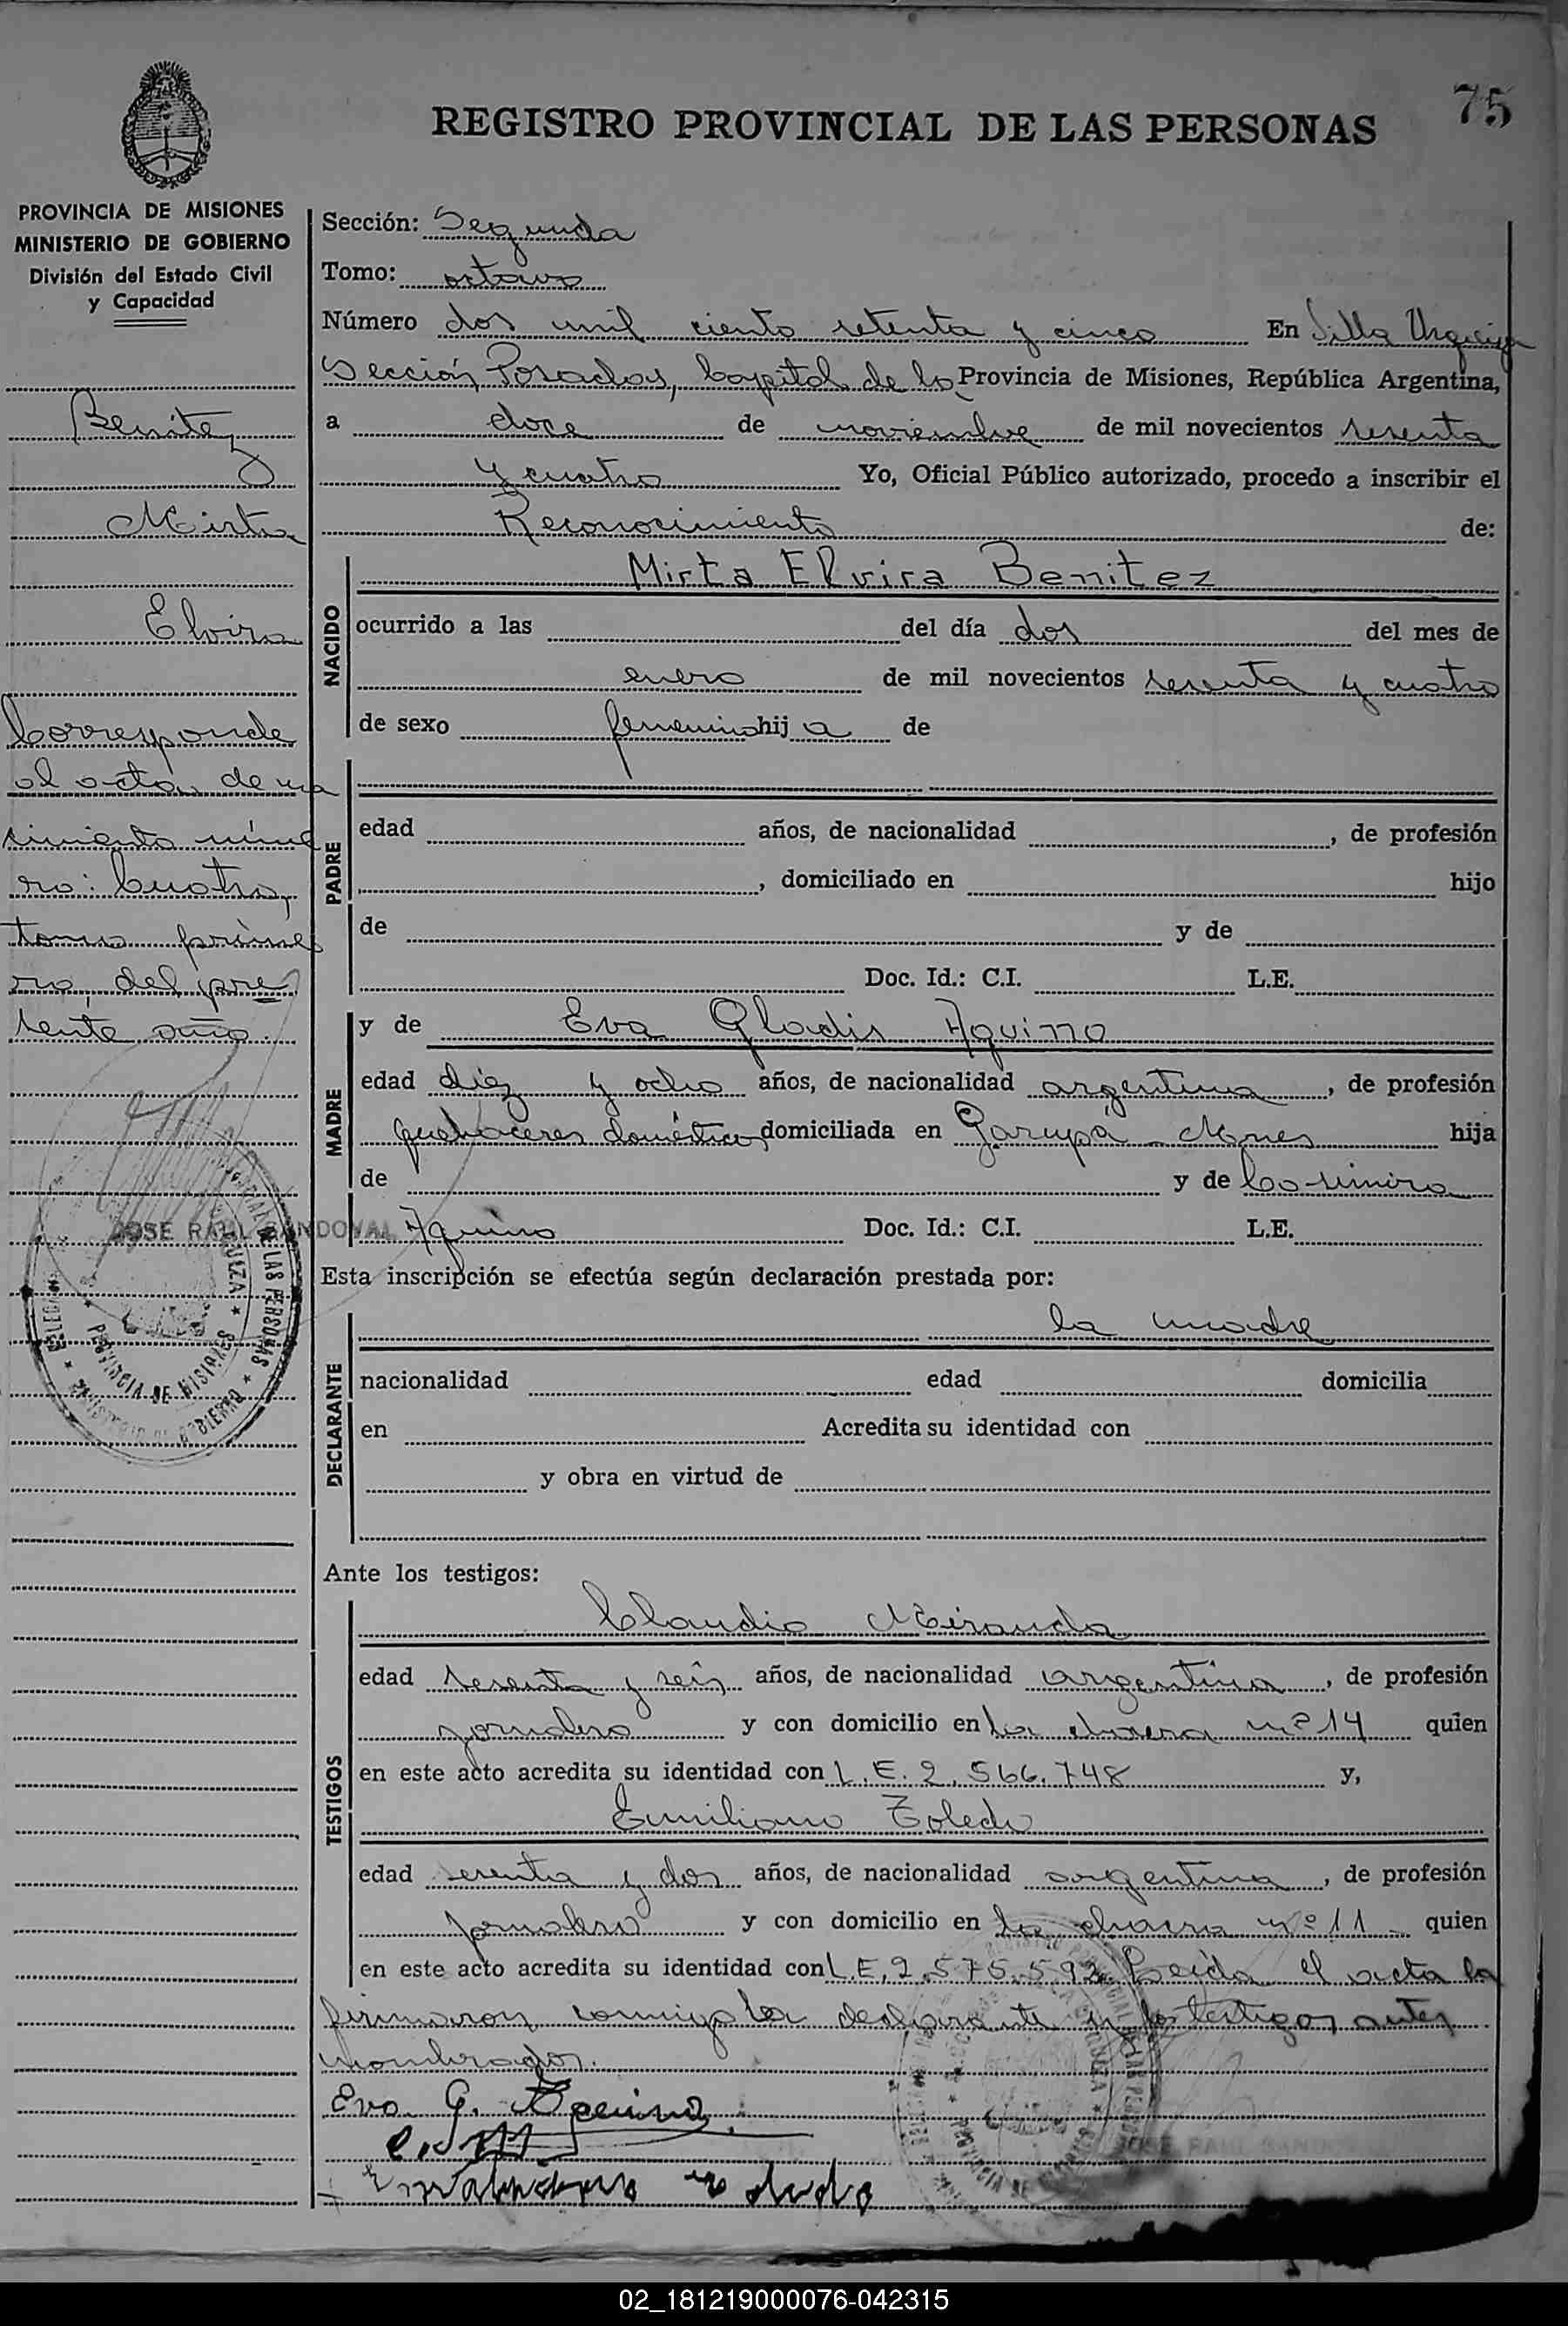 75
REGISTRO PROVINCIAL DE LAS PERSONAS
PROVINCIA DE MISIONES
MINISTERIO DE GOBIERNO
División del Estado Civil
y Capacidad
Benitez
Mirta
Elvira
Corresponde
al acta de na
cimiento núme
ro: Cuatro,
tomo prime
ro, del pre
sente año.
JOSE RAUL SANDOVAL
PROVINCIA DE MISIONES
MINISTERIO DE GOBIERNO
Sección: Segunda
Tomo: octavo
Número dos mil ciento setenta y cinco En Villa Urquiza
Sección Posadas, Capital de la Provincia de Misiones, República Argentina,
a doce de noviembre de mil novecientos sesenta
y cuatro Yo, Oficial Público autorizado, procedo a inscribir el
Reconocimiento de:
NACIDO
Mirta Elvira Benitez
ocurrido a las del día dos del mes de
enero de mil novecientos sesenta y cuatro
de sexo femenino hij a de
PADRE
edad años, de nacionalidad , de profesión
, domiciliado en hijo
de y de
Doc. Id.: C.I. L.E.
MADRE
y de Eva Gladis Aquino
edad diez y ocho años, de nacionalidad argentina , de profesión
quehaceres domésticos domiciliada en Garupá - Mnes hija
de y de Casimira
Aquino Doc. Id.: C.I. L.E.
Esta inscripción se efectúa según declaración prestada por:
DECLARANTE
la madre
nacionalidad edad domicilia
en Acredita su identidad con
y obra en virtud de
Ante los testigos:
TESTIGOS
Claudio Miranda
edad sesenta y seis años, de nacionalidad argentina , de profesión
jornalero y con domicilio en la chacra nº 14 quien
en este acto acredita su identidad con L.E. 2.566.748 y,
Emiliano Toledo
edad sesenta y dos años, de nacionalidad argentina , de profesión
jornalero y con domicilio en la chacra nº 11 - quien
en este acto acredita su identidad con L.E. 2.575.592. Leída el acta la
firmaron conmigo la declarante y los testigos antes
nombrados.
Eva G. Aquino
JOSE RAUL SANDOVAL
02_181219000076-042315